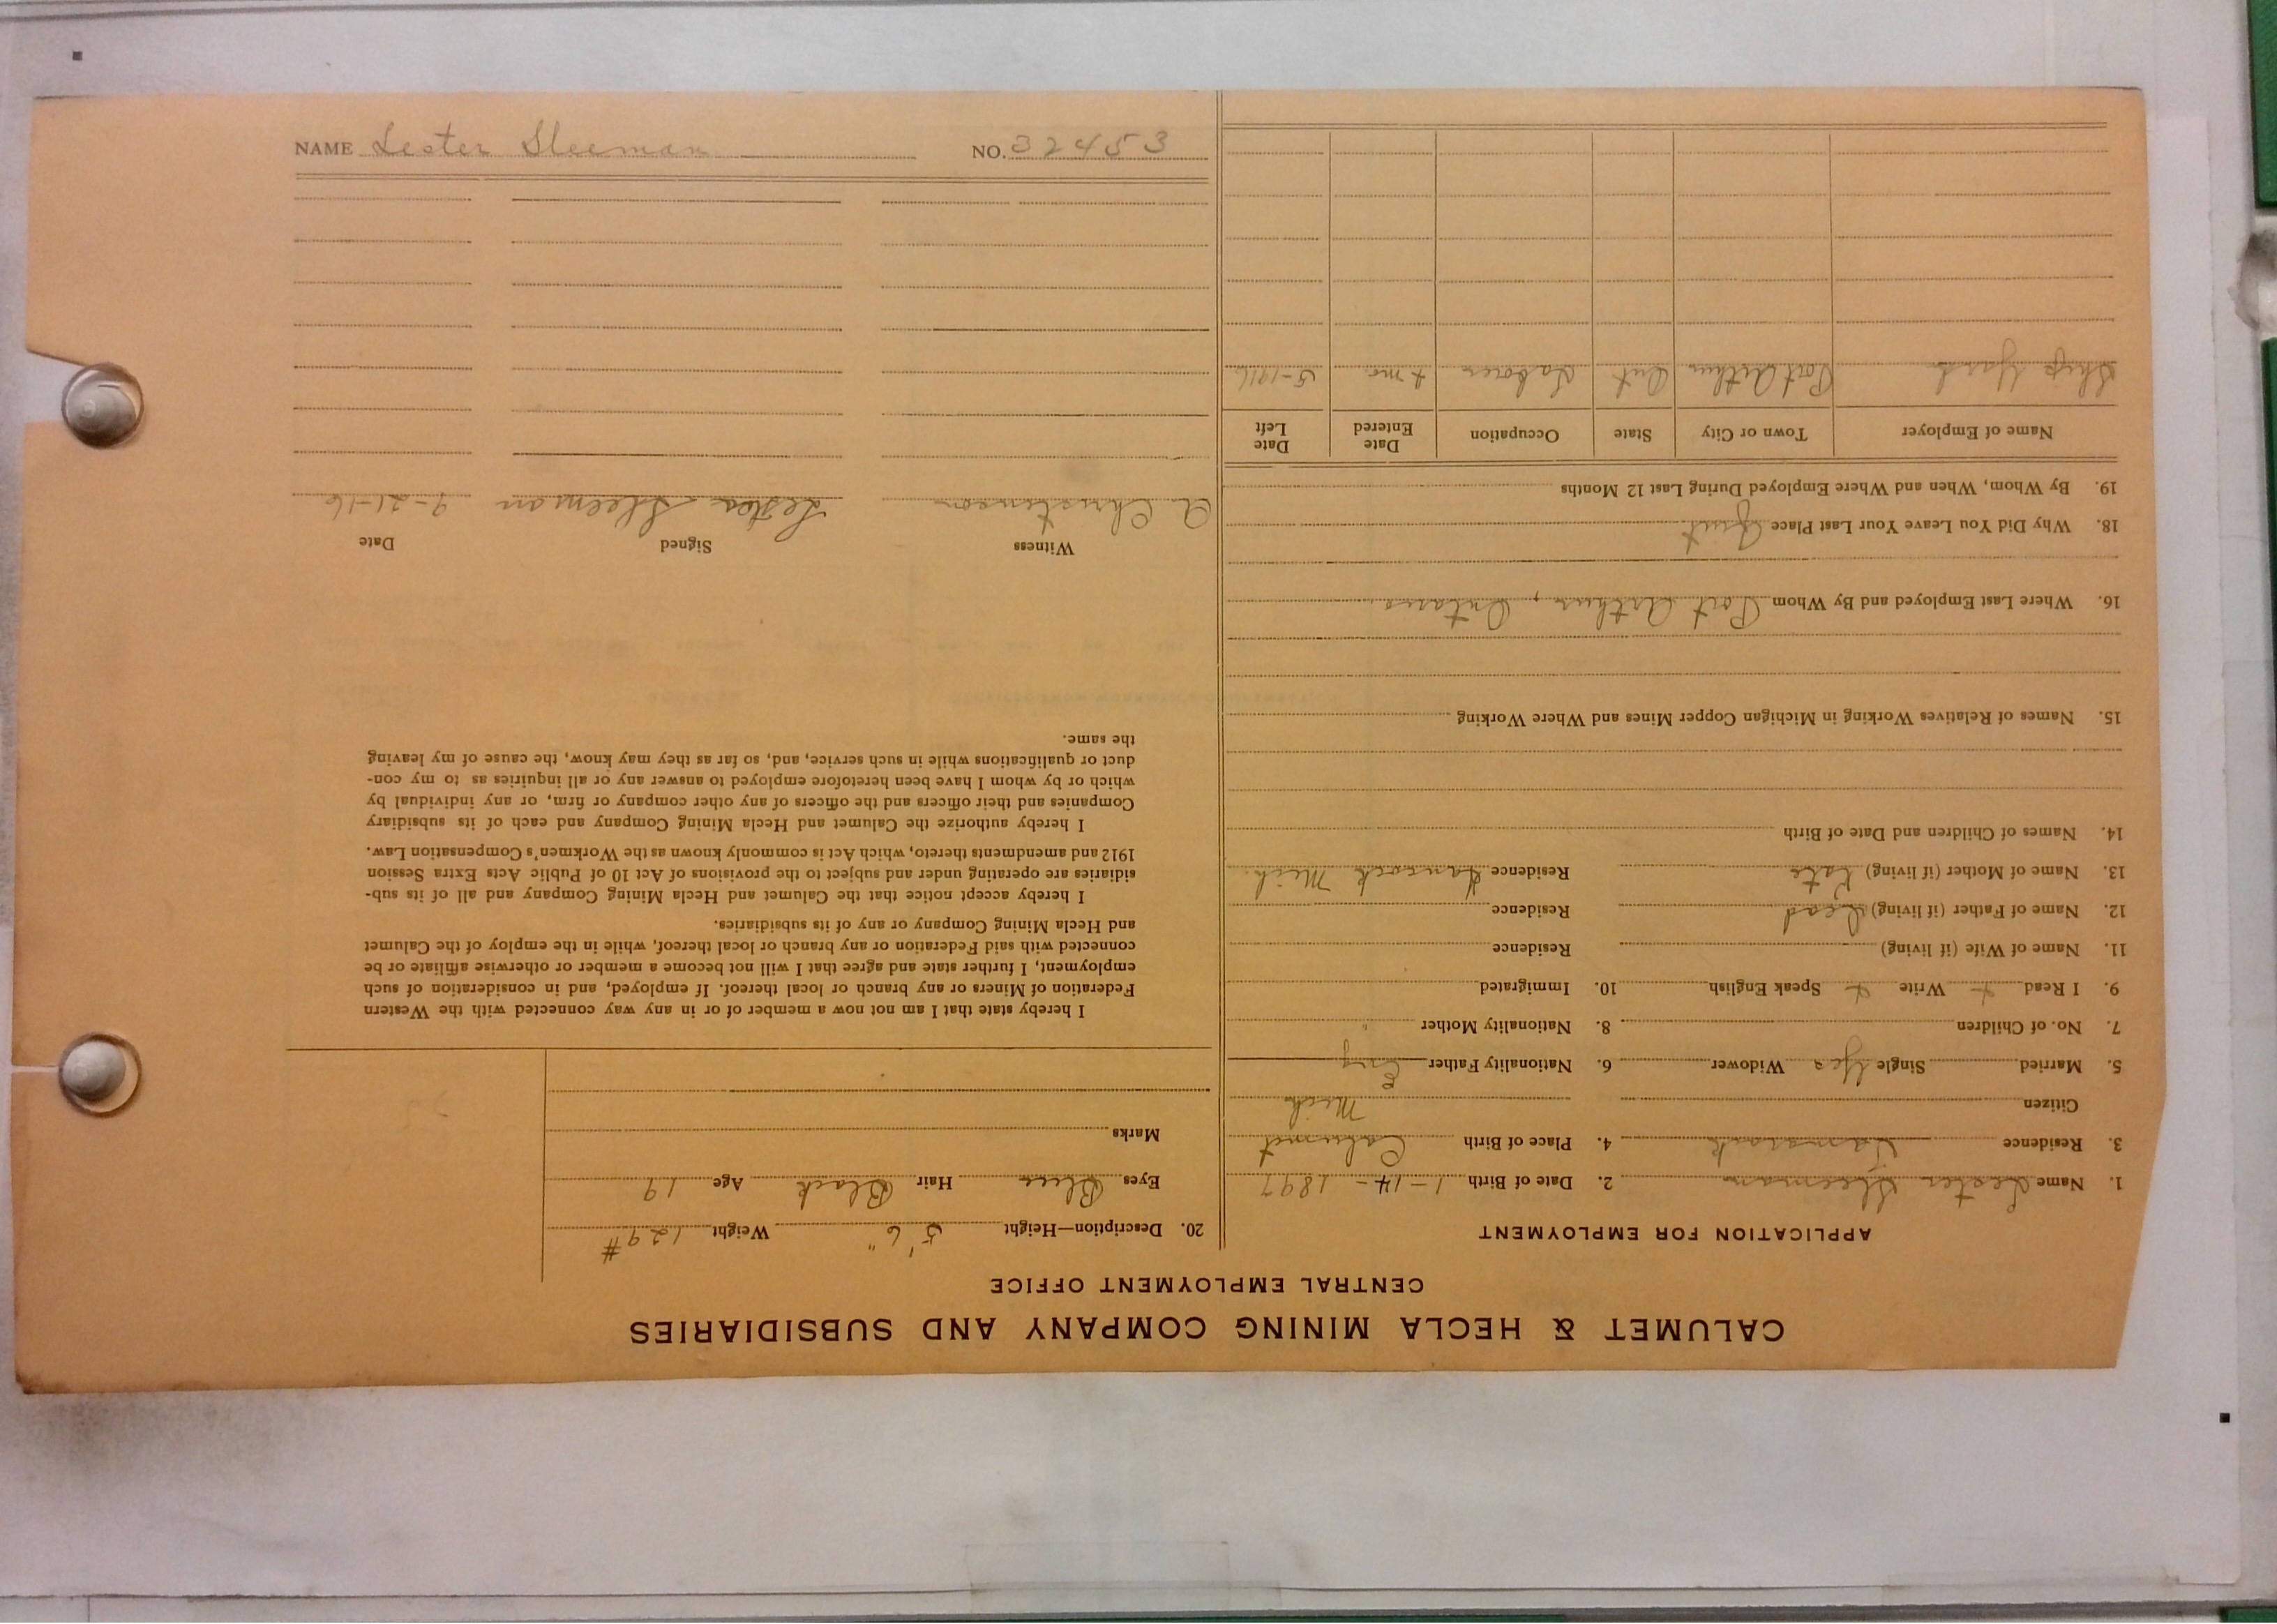 NAME Lester Sleeman NO. 32453
CALUMET & HECLA MINING COMPANY AND SUBSIDIARIES
CENTRAL EMPLOYMENT OFFICE
APPLICATION FOR EMPLOYMENT
1. Name Lester Sleeman 2. Date of Birth 1-14-1897
3. Residence 4. Place of Birth Calumet
Citizen Mich
5. Married Single Yes Widower 6. Nationality Father Eng
7. No. of Children 8. Nationality Mother "
9. I Read + Write + Speak English 10. Immigrated
11. Name of Wife (if living) Residence
12. Name of Father (if living) Dead Residence
13. Name of Mother (if living) Kate Residence Hancock Mich.
14. Names of Children and Date of Birth
15. Names of Relatives Working in Michigan Copper Mines and Where Working
16. Where Last Employed and By Whom Port Arthur, Ontario
18. Why Did You Leave Your Last Place Quit
19. By Whom, When and Where Employed During Last 12 Months
Name of Employer Town or City State Occupation Date Entered Date Left
Ship Yard Port Arthur Ont Laborer + mo. 5-1916
20. Description—Height 5' 6" Weight 129#
Eyes Blue Hair Black Age 19
Marks
I hereby state that I am not now a member of or in any way connected with the Western
Federation of Miners or any branch or local thereof. If employed, and in consideration of such
employment, I further state and agree that I will not become a member or otherwise affiliate or be
connected with said Federation or any branch or local thereof, while in the employ of the Calumet
and Hecla Mining Company or any of its subsidiaries.
I hereby accept notice that the Calumet and Hecla Mining Company and all of its sub-
sidiaries are operating under and subject to the provisions of Act 10 of Public Acts Extra Session
1912 and amendments thereto, which Act is commonly known as the Workmen's Compensation Law.
I hereby authorize the Calumet and Hecla Mining Company and each of its subsidiary
Companies and their officers and the officers of any other company or firm, or any individual by
which or by whom I have been heretofore employed to answer any or all inquiries as to my con-
duct or qualifications while in such service, and, so far as they may know, the cause of my leaving
the same.
Witness Signed Date
A Christenson Lester Sleeman 9-21-16